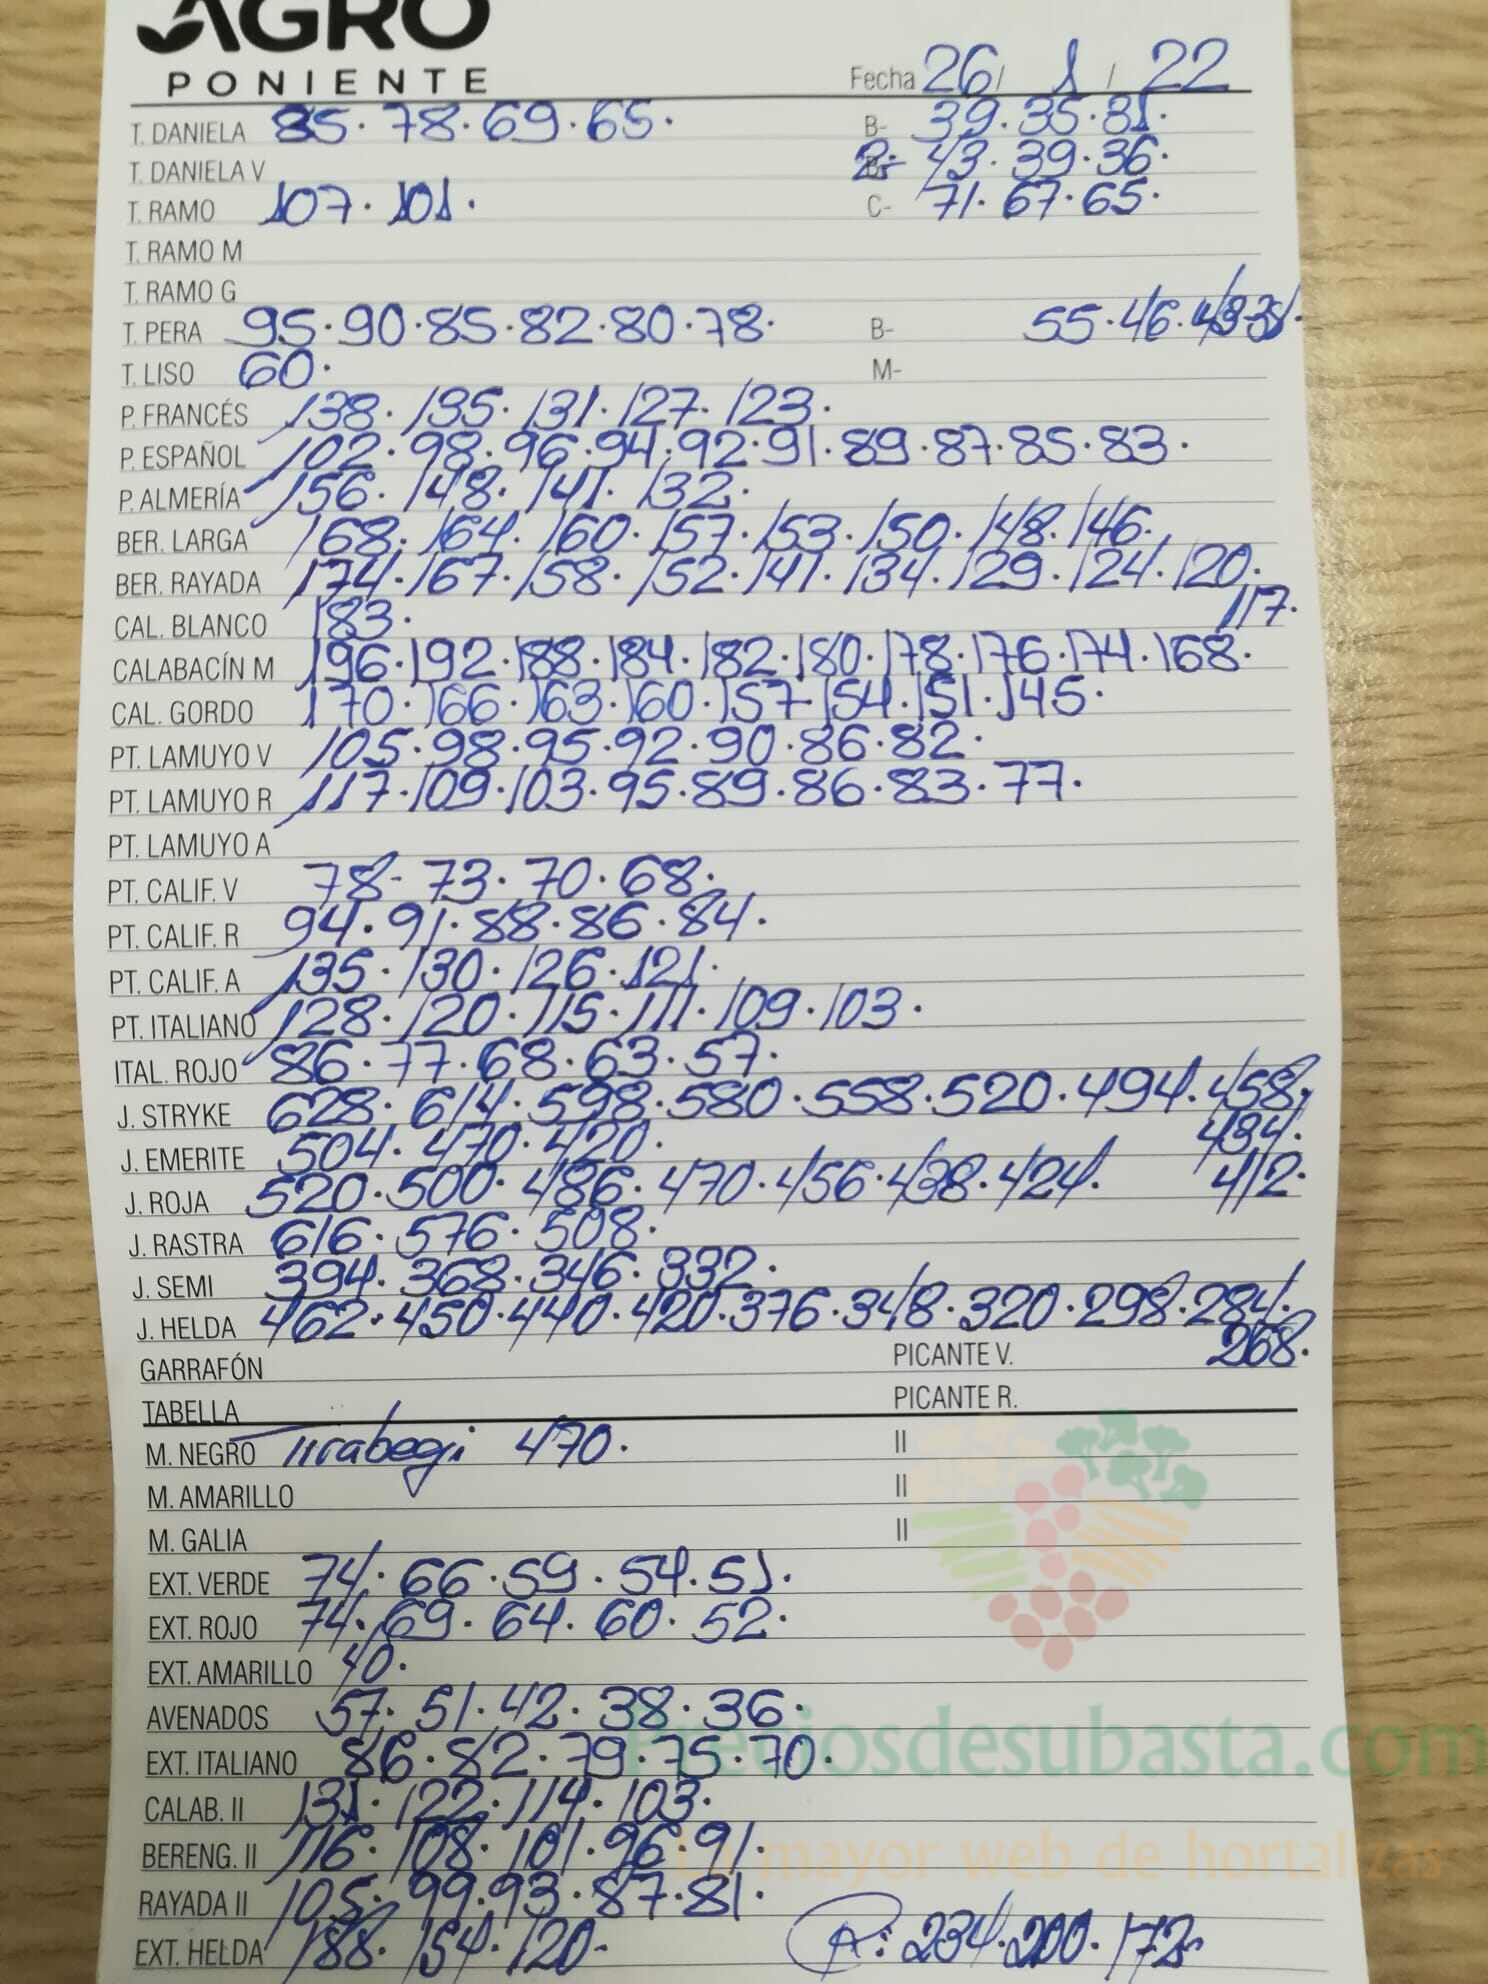 AGRO
PONIENTE
Fecha 26/ 1 / 22
T. DANIELA 85. 78. 69. 65. B- 39. 35. 31.
T. DANIELA V 2- 43. 39. 36.
T. RAMO 107. 101. C- 71. 67. 65.
T. RAMO M
T. RAMO G
T. PERA 95. 90. 85. 82. 80. 78. B- 55. 46. 43
T. LISO 60. M-
P. FRANCÉS 138. 135. 131. 127. 123.
P. ESPAÑOL 102. 98. 96. 94. 92. 91. 89. 87. 85. 83.
P. ALMERÍA 156. 148. 141. 132.
BER. LARGA 168. 164. 160. 157. 153. 150. 148. 146.
BER. RAYADA 174. 167. 158. 152. 141. 134. 129. 124. 120.
117.
CAL. BLANCO 183.
CALABACÍN M 196. 192. 188. 184. 182. 180. 178. 176. 174. 168.
CAL. GORDO 170. 166. 163. 160. 157- 154. 151. 145.
PT. LAMUYO V 105. 98. 95. 92. 90. 86. 82.
PT. LAMUYO R 117. 109. 103. 95. 89. 86. 83. 77.
PT. LAMUYO A
PT. CALIF. V 78- 73. 70. 68.
PT. CALIF. R 94. 91. 88. 86. 84.
PT. CALIF. A 135. 130. 126. 121.
PT. ITALIANO 128. 120. 115. 111. 109. 103.
ITAL. ROJO 86. 77. 68. 63. 57.
J. STRYKE 628. 614. 598. 580. 558. 520. 494. 458.
434.
J. EMERITE 504. 470. 420.
J. ROJA 520. 500. 486. 470. 456. 438. 424. 412.
J. RASTRA 616. 576. 508.
J. SEMI 394. 368. 346. 332.
J. HELDA 462. 450. 440. 420. 376. 348. 320. 298. 284.
268.
GARRAFÓN PICANTE V.
TABELLA PICANTE R.
M. NEGRO Tirabegi 470. II
M. AMARILLO II
M. GALIA II
EXT. VERDE 74. 66. 59. 54. 51.
EXT. ROJO 74. 69. 64. 60. 52.
EXT. AMARILLO 40.
AVENADOS 57. 51. 42. 38. 36.
Preciosdesubasta.com
EXT. ITALIANO 86. 82. 79. 75. 70.
CALAB. II 131. 122. 114. 103.
BERENG. II 116. 108. 101. 96. 91.
La mayor web de hortalizas
RAYADA II 105. 99. 93. 87. 81.
EXT. HELDA 188. 154. 120- R: 234. 200. 172